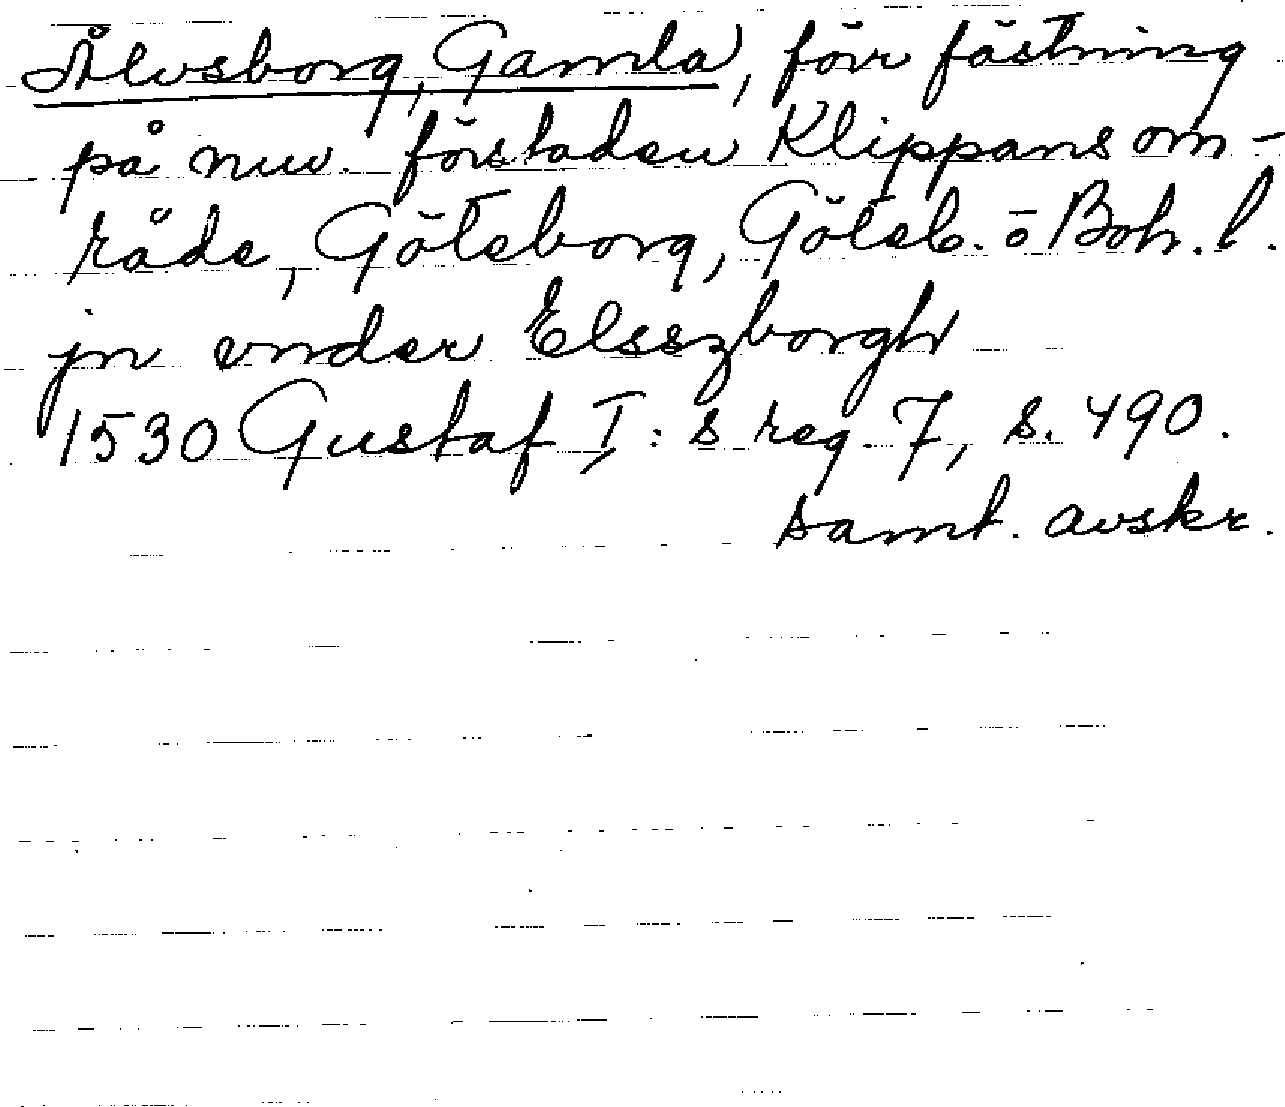 Älvsborg, Gamla, förr fästning
på nuv. förstaden Klippans om-
råde, Göteborg, Göteb. o Boh. l.
jn vnder Elsszborgh
1530 Gustaf I:s reg. 7, s. 490.
samt. avskr.